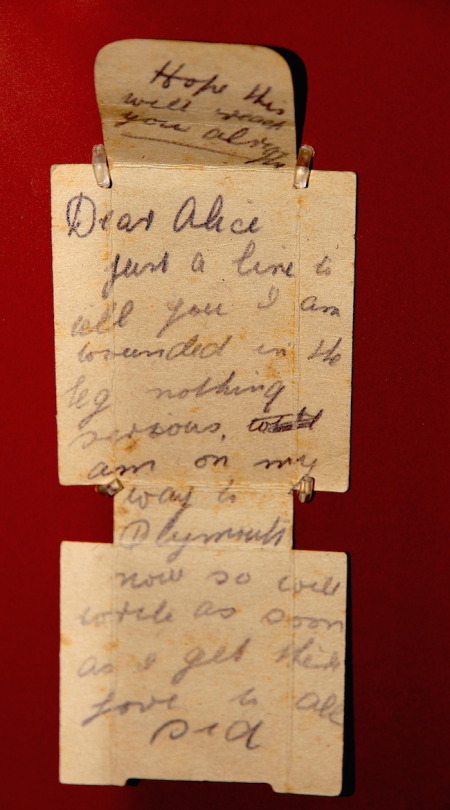 Hope this
will reach
you alright
Dear Alice
just a line to
tell you I am
wounded in the
leg nothing
serious.
am on my
way to
Plymouth
now so will
write as soon
as I get there
Love to all
Sid